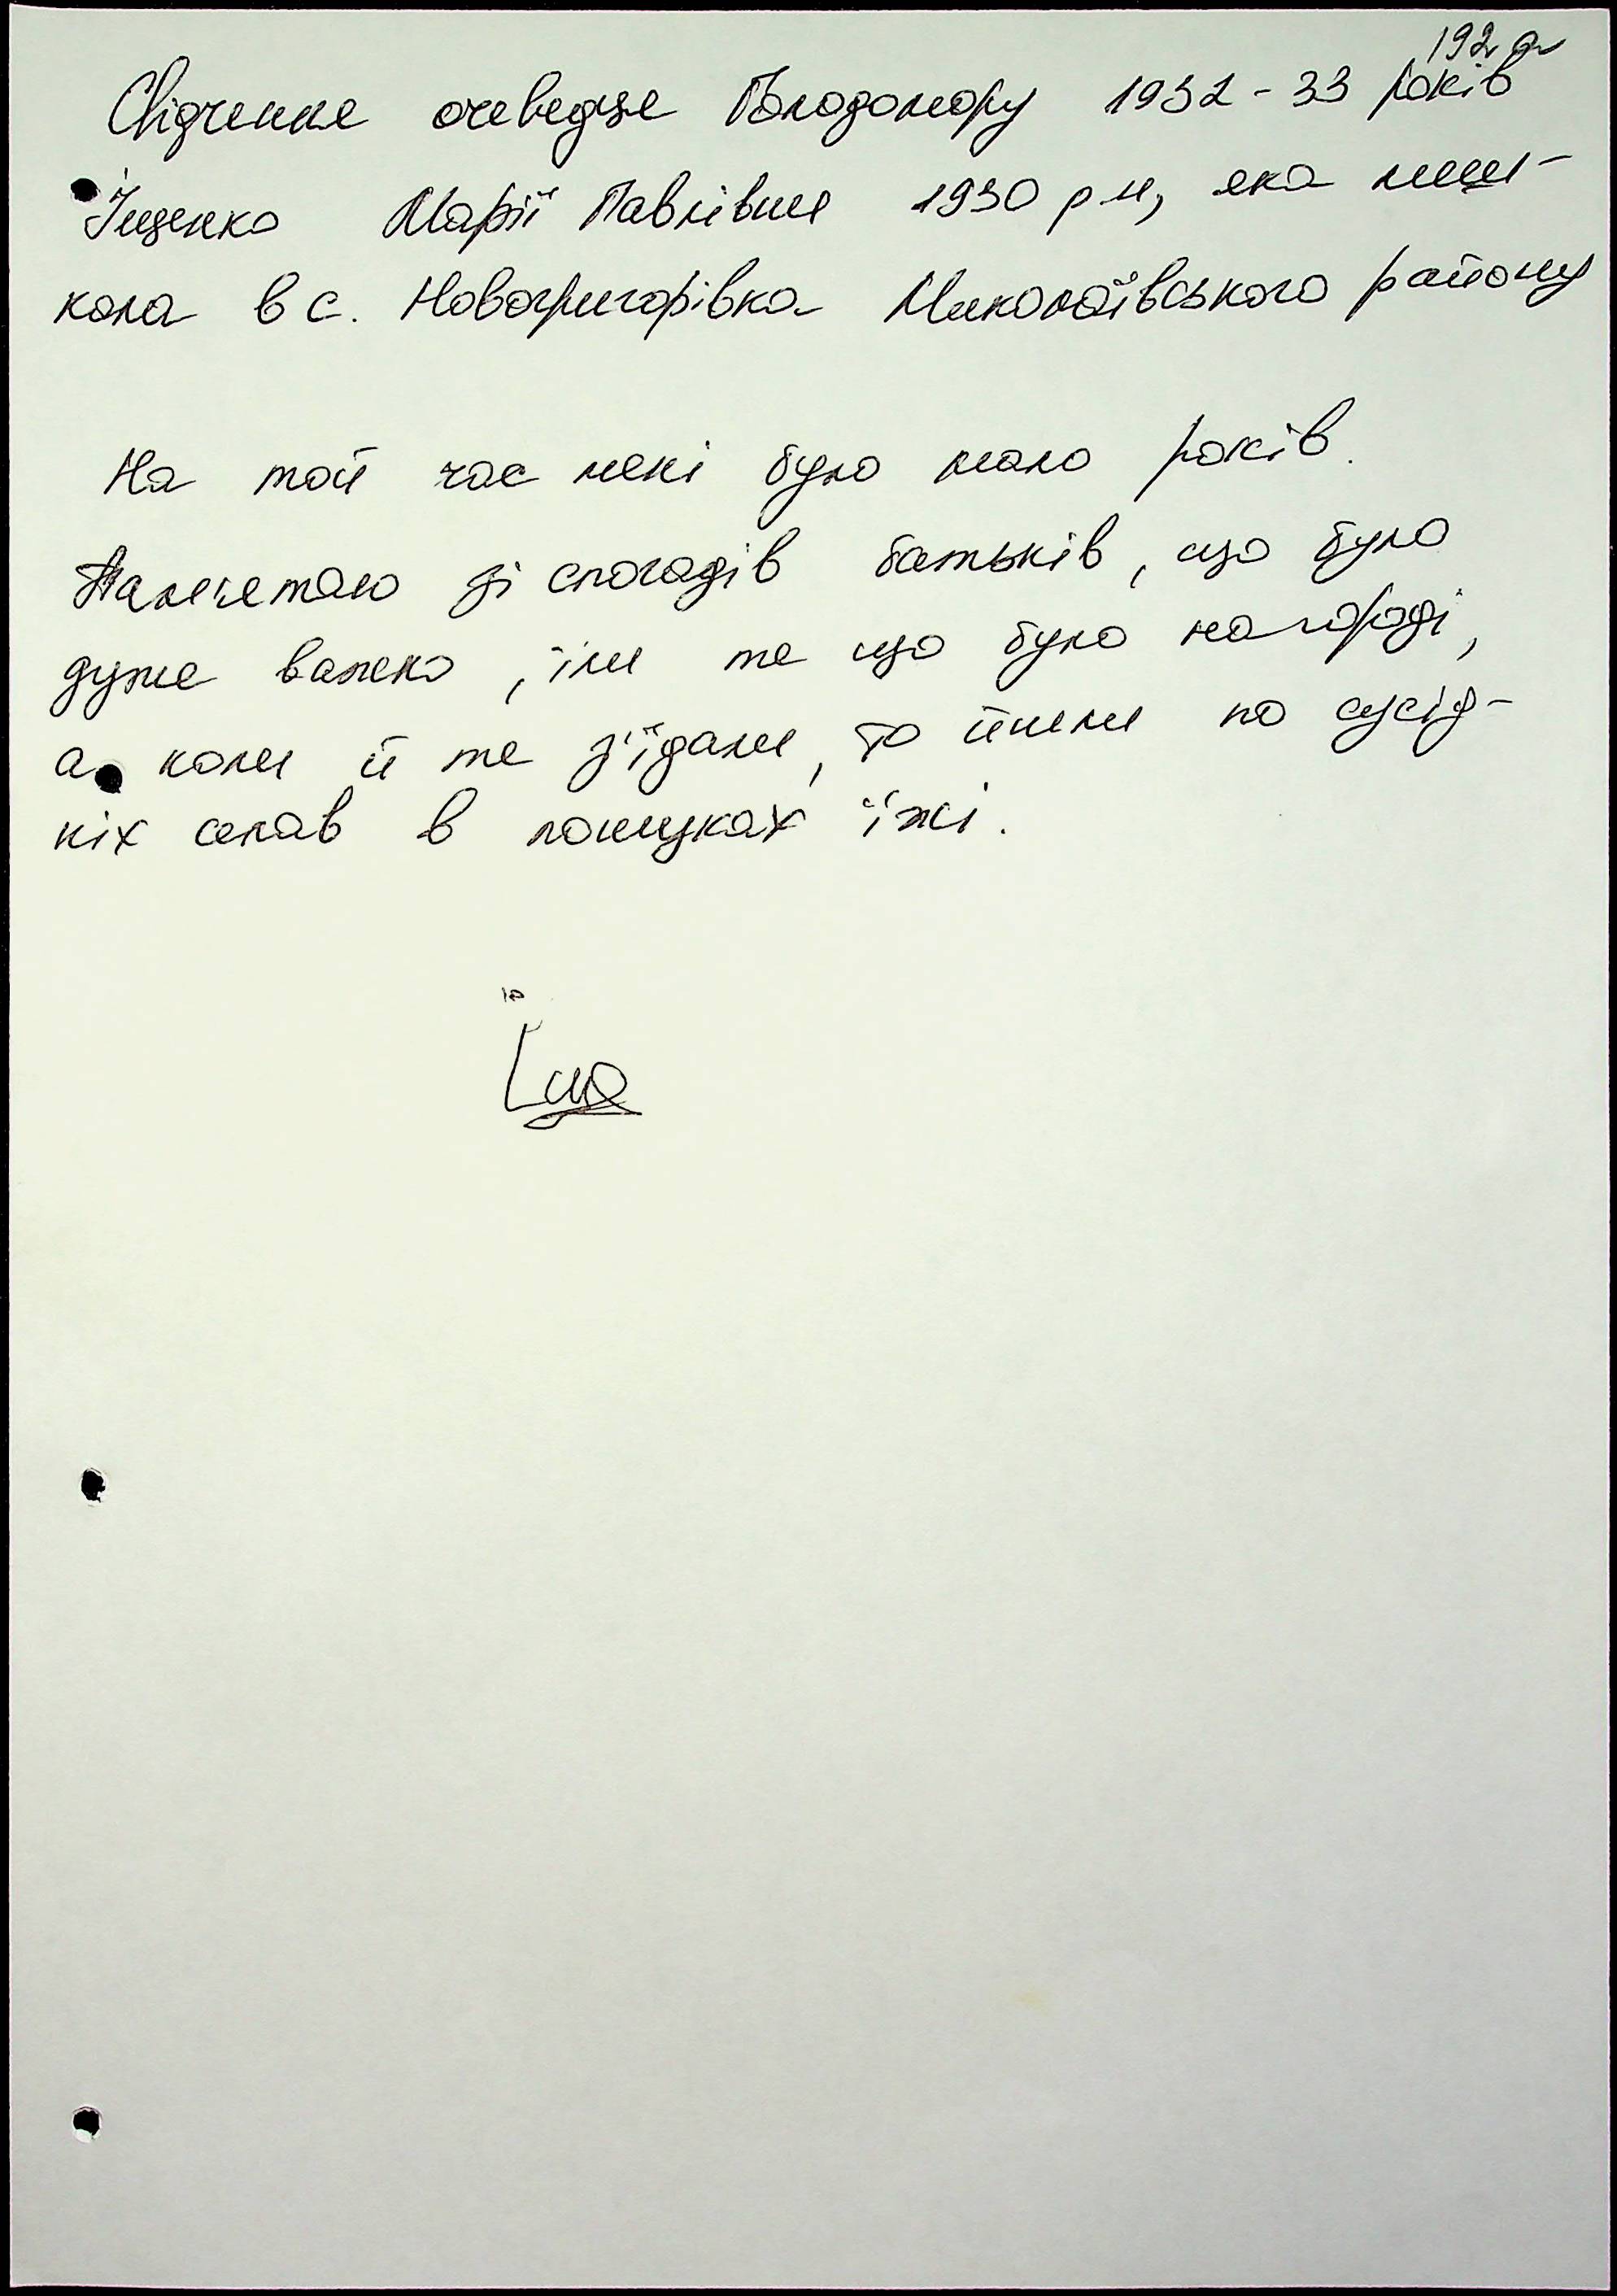 192а
Свідчення очевидця Голодомору 1932-33 років
Іщенко Марії Павлівни 1930 р н, яка меш-
кала в с. Новогригорівка Миколаївського району
На той час мені було мало років.
Памʼятаю зі спогадів батьків, що було
дуже важко, їли те що було на городі,
а коли й те зʼїдали, то йшли по сусід-
ніх селав в пошуках їжі.
Іщ